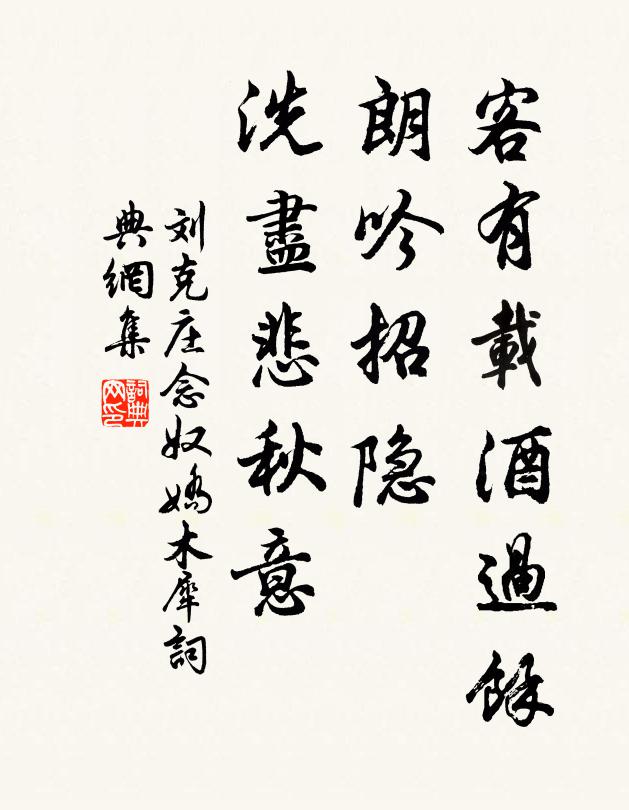 客有載酒過餘
朗吟招隐
洗盡悲秋意
刘克庄念奴嬌木犀詞
典網集
詞典網印